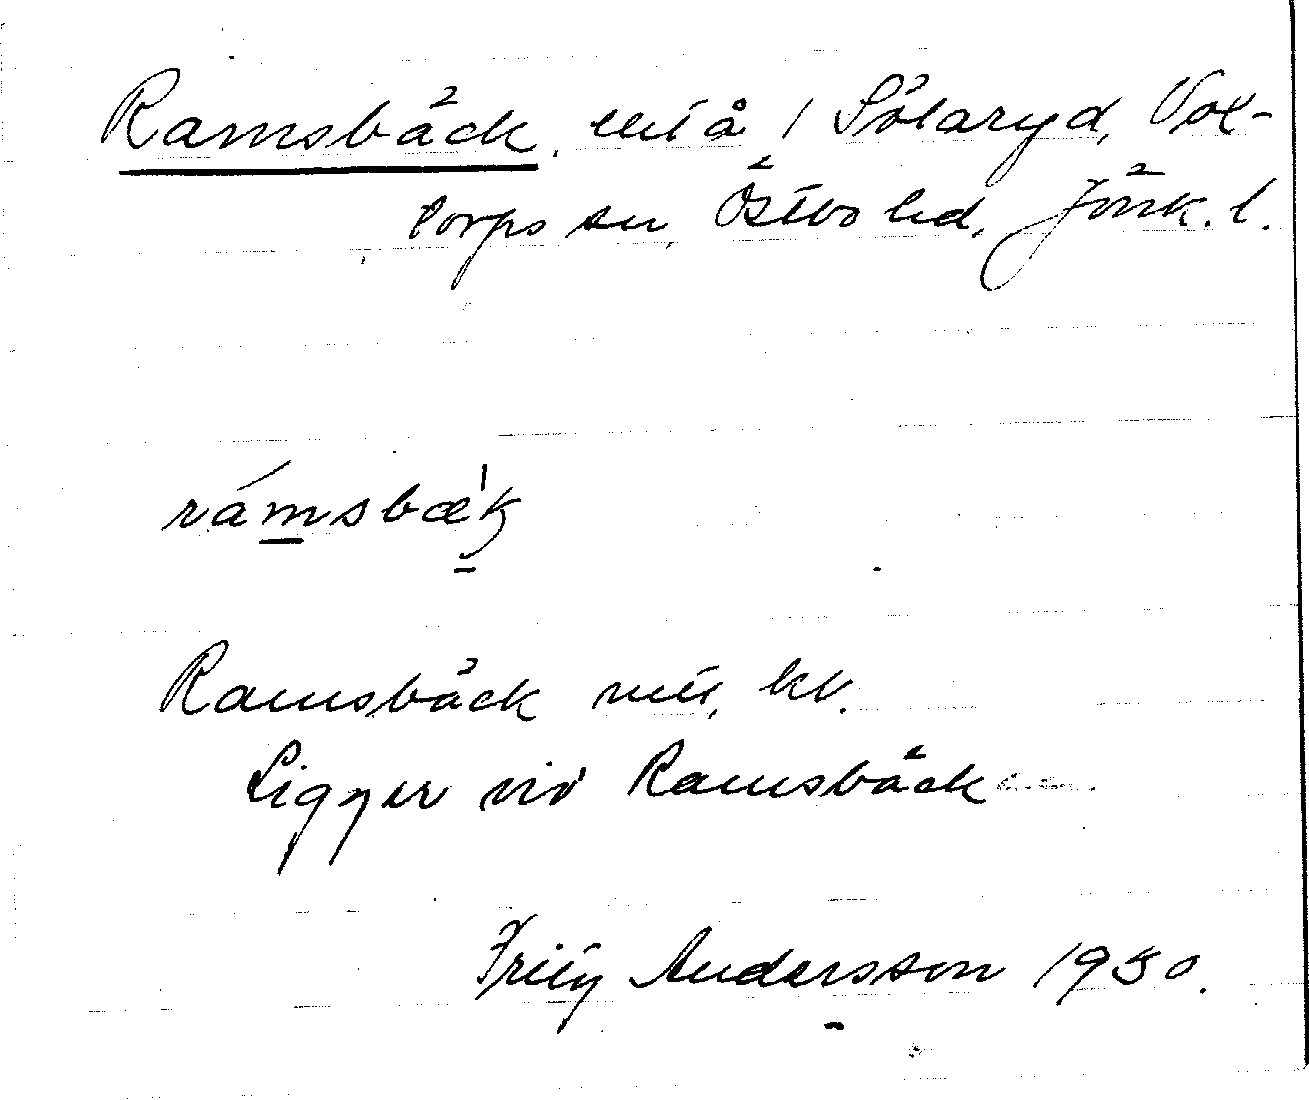 Ramsbäck, utå / Sölaryd, Vol-
torps sn, Östbo hd, Jönk. l.
rámsbæ'k
Ramsbäck utå, kv.
Ligger vid Ramsbäck
Fritz Andersson 1930.